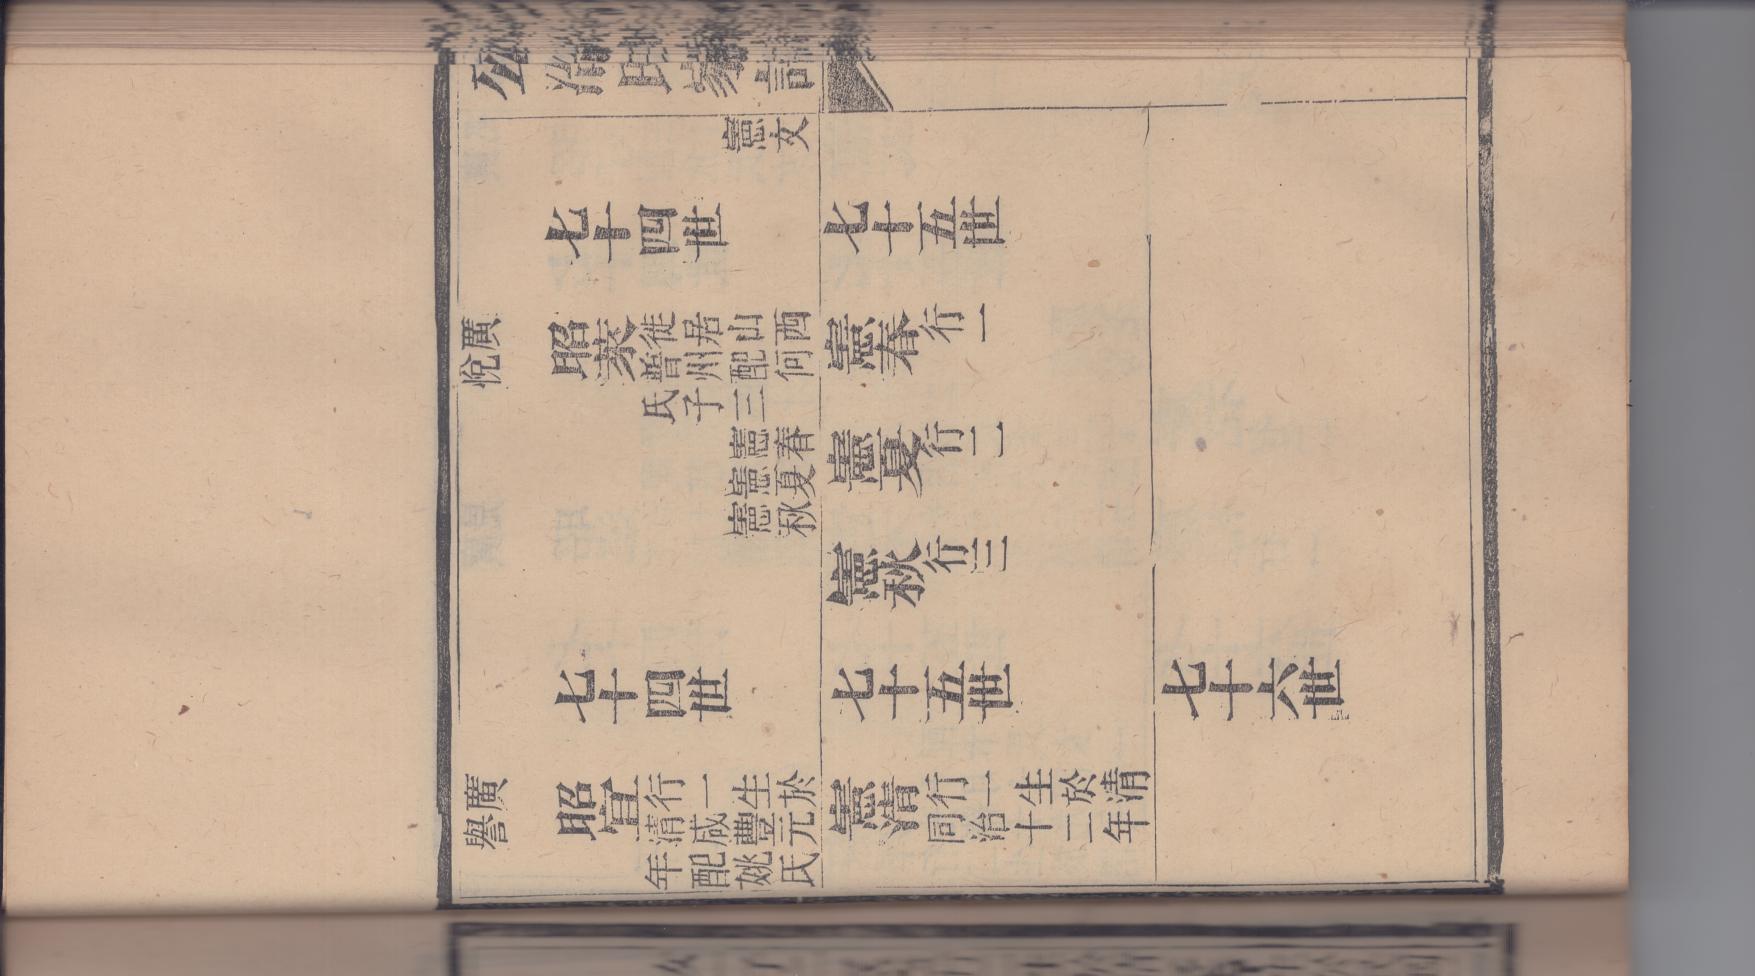 公冶氏
憲文
七十四世
七十五世
廣悅
昭萊
徙居山西
普州配何
氏子三
憲春
憲夏
憲秋
憲春行一
憲夏行二
憲秋行三
七十四世
七十五世
七十六世
廣譽
昭宜
行一生於
清咸豐元
年配姚氏
憲清
行一生於清
同治十二年